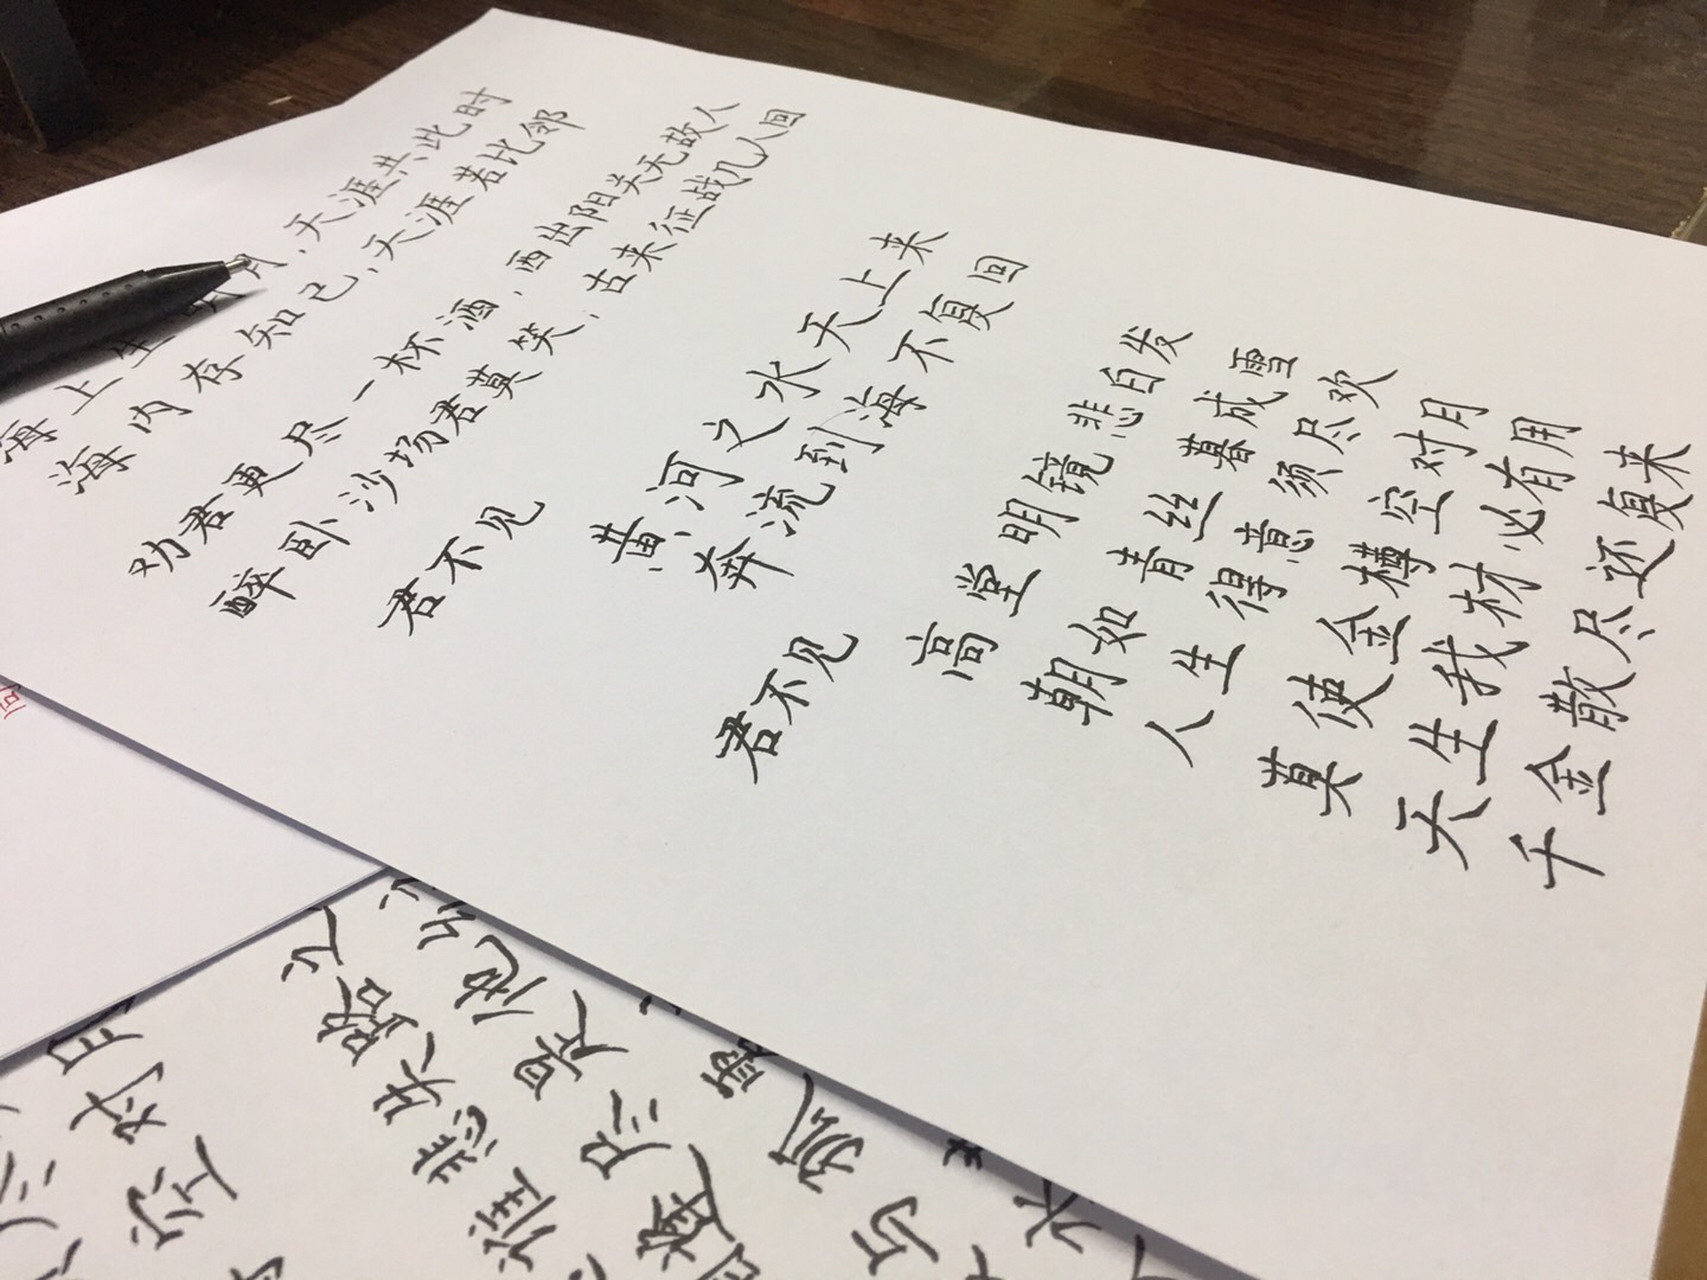 海上生明月，天涯共此时
海内存知己，天涯若比邻
劝君更尽一杯酒，西出阳关无故人
醉卧沙场君莫笑，古来征战几人回
君不见
黄河之水天上来
奔流到海不复回
君不见
高堂明镜悲白发
朝如青丝暮成雪
人生得意须尽欢
莫使金樽空对月
天生我材必有用
千金散尽还复来
空对月
谁悲失路之
尽是他
与孤
水